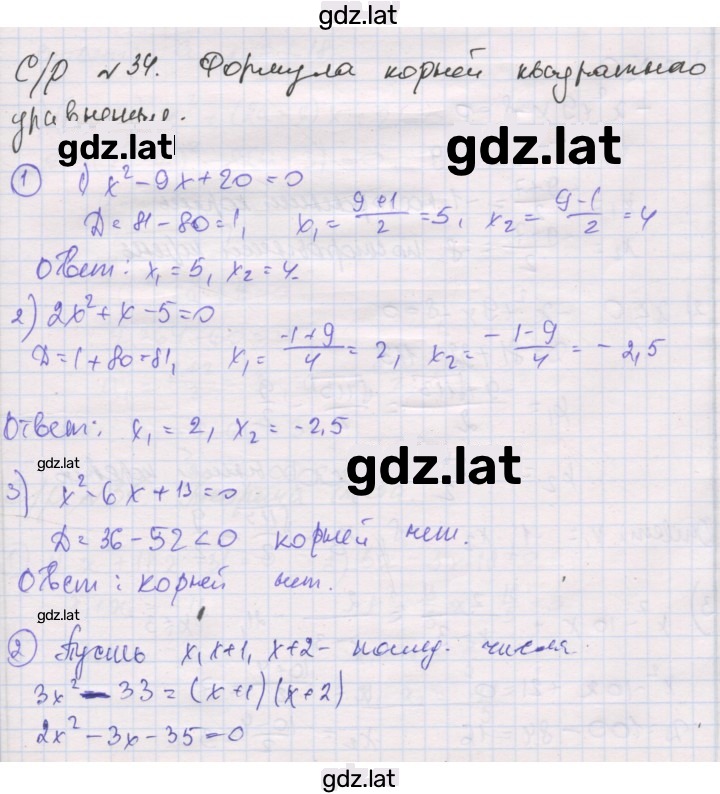 gdz.lat
С/р №34. Формула корней квадратного
уравнения.
gdz.lat
gdz.lat
① 1) x² - 9x + 20 = 0
Д = 81 - 80 = 1, x₁ = (9+1)/2 = 5, x₂ = (9-1)/2 = 4
Ответ: x₁ = 5, x₂ = 4.
2) 2x² + x - 5 = 0
Д = 1 + 80 = 81, x₁ = (-1+9)/4 = 2, x₂ = (-1-9)/4 = -2,5
Ответ: x₁ = 2, x₂ = -2,5
gdz.lat
gdz.lat
3) x² - 6x + 13 = 0
Д = 36 - 52 < 0 корней нет.
Ответ: корней нет.
gdz.lat
② Пусть x, x+1, x+2 - послед. числа.
3x² - 33 = (x+1)(x+2)
2x² - 3x - 35 = 0
gdz.lat